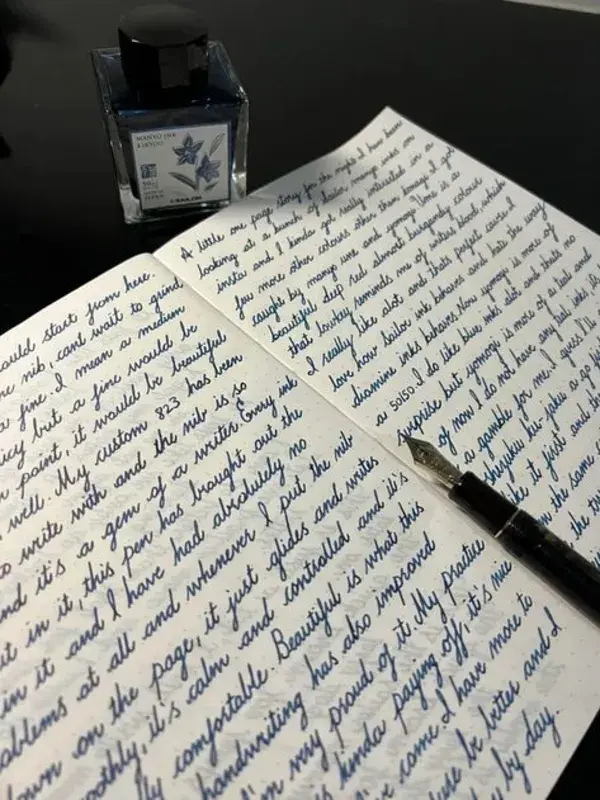 MANYO INK
KIKYOU
50ml
JAPAN
SAILOR
ould start from here.
e nib, cant wait to grind
a fine. I mean a medium
icy but a fine would be
n point, it would be beautiful
well. My custom 823 has been
o write with and the nib is so
nd it's a gem of a writer. Every ink
it in it, this pen has brought out the
in it and I have had absolutely no
oblems at all and whenever I put the nib
down on the page, it just glides and writes
oothly, it's calm and controlled and it's
lly comfortable. Beautiful is what this
handwriting has also improved
I'm very proud of it. My practice
is kinda paying off, it's nice
I've come. I have more to
use be better and I
y by day.
A little one page story for the night. I have been
looking at a bunch of sailor manyo inks on
insta and I kinda got really interested in a
few more other colours other than konagi. I got
caught by manyo ume and yomogi. Ume is a
beautiful deep red almost burgandy colour
that lowkey reminds me of writers blood, which
I really like alot and thats perfect cause I
love how sailor ink behaves and hate the way
diamine inks behaves. Now yomogi is more of
a 50/50. I do like blue inks alot and thats no
surprise but yomogi is more of a teal and
of now I do not have any teal inks. It's
a gamble for me. I guess I'll
shizuku ku-jaku a go
like it first and
the same
the